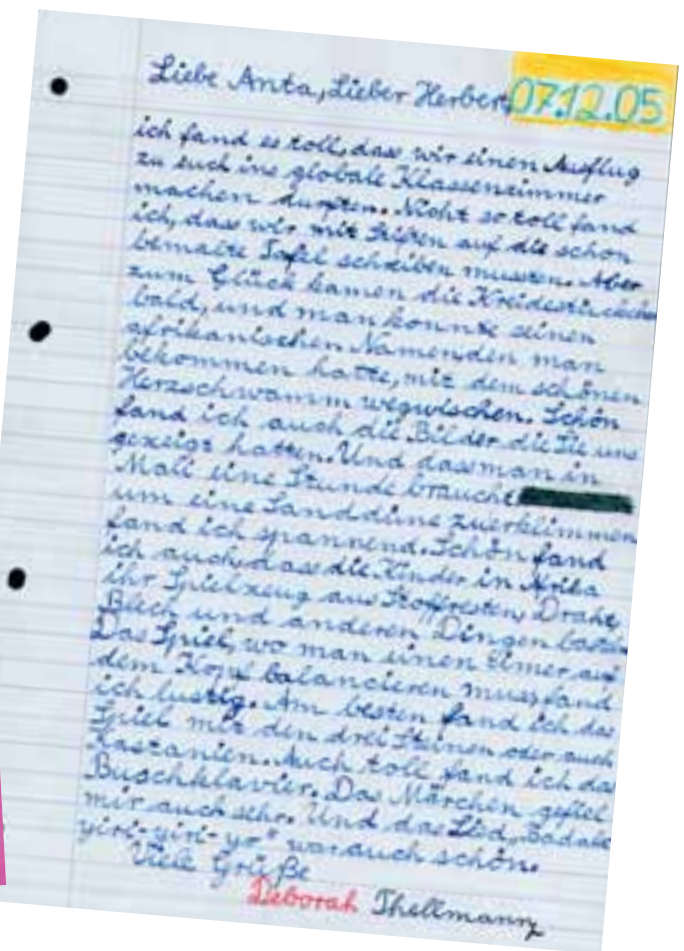 Liebe Anta, Lieber Herbert,
07.12.05
ich fand es toll, dass wir einen Ausflug
zu euch ins globale Klassenzimmer
machen durften. Nicht so toll fand
ich, dass wir mit Stiften auf die schon
bemalte Tafel schreiben mussten. Aber
zum Glück kamen die Kreidestückchen
bald, und man konnte seinen
afrikanischen Namenden man
bekommen hatte, mit dem schönen
Herzschwamm wegwischen. Schön
fand ich auch die Bilder die Sie uns
gezeigt hatten. Und dass man in
Mali eine Stunde braucht
um eine Sanddüne zuerklimmen
fand ich spannend. Schön fand
ich auch, dass die Kinder in Afrika
ihr Spielzeug aus Stoffresten, Draht,
Blech und anderen Dingen
Das Spiel, wo man einen Eimer auf
dem Kopf balancieren muss, fand
ich lustig. Am besten fand ich das
Spiel mit den drei Steinen oder auch
Kastanien. Auch toll fand ich da
Buschklavier. Das Märchen gefiel
mir auch sehr. Und das Lied,
yiri-yiri-yo" war auch schön.
Viele Grüße
Deborah Thellmann